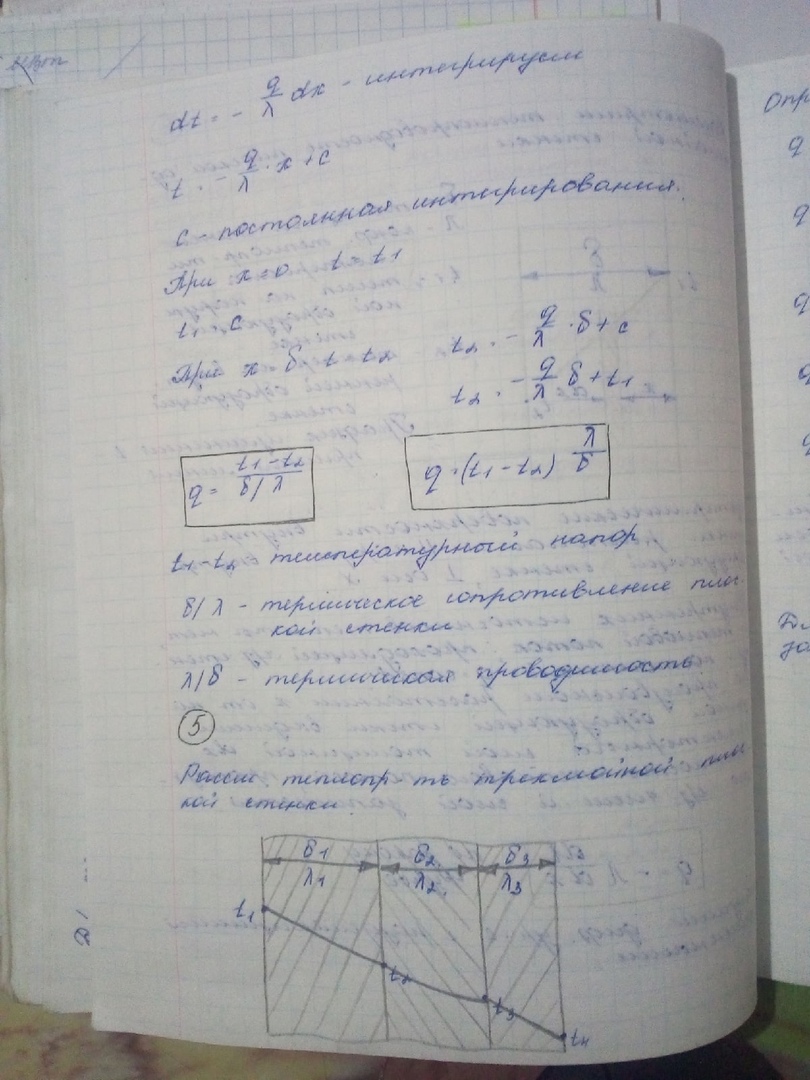 dt = - q/λ dx - интегрируем
t = - q/λ · x + c
c - постоянная интегрирования.
При x=0 t=t1
t1 = c
При x = δ t = t2
t2 = - q/λ · δ + c
t2 = - q/λ δ + t1
q = t1-t2 / δ/λ
q = (t1-t2) λ/δ
t1-t2 температурный напор
δ/λ - термическое сопротивление плос-
кой стенки
λ/δ - термическая проводимость
5
Рассм теплопр ть трехслойной плос
кой стенки
δ1 δ2 δ3
λ1 λ2 λ3
t1
t2
t3
t4
Опр
q
q
q
q
q